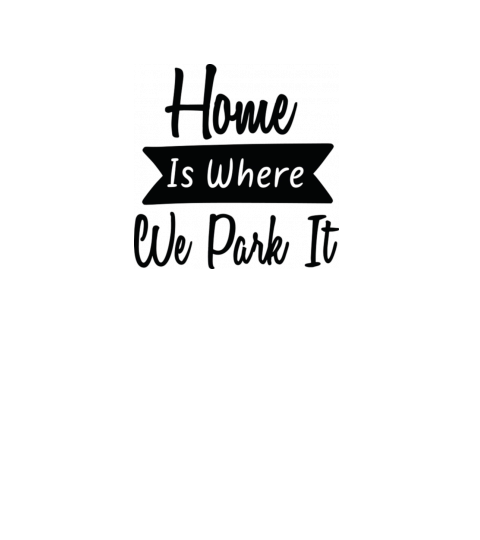 Home
Is Where
We Park It